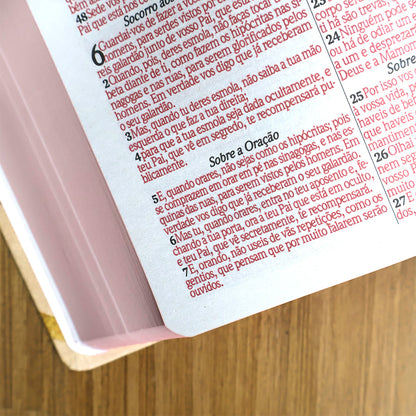 48Sede vós
Pai que está
Socorro aos
6 Guardai-vos de fazer a vossa
homens, para serdes vistos por eles
reis galardão junto de vosso Pai, que está
2Quando, pois, deres esmola, não faças tocar trom-
beta diante de ti, como fazem os hipócritas nas si-
nagogas e nas ruas, para serem glorificados pelos
homens. Em verdade vos digo que já receberam
o seu galardão.
3Mas, quando tu deres esmola, não saiba a tua mão
esquerda o que faz a tua direita;
4para que a tua esmola seja dada ocultamente, e
teu Pai, que vê em segredo, te recompensará pu-
blicamente.
Sobre a Oração
5E, quando orares, não sejas como os hipócritas, pois
se comprazem em orar em pé nas sinagogas, e nas es-
quinas das ruas, para serem vistos pelos homens. Em
verdade vos digo que já receberam o seu galardão.
6Mas tu, quando orares, entra no teu aposento e, fe-
chando a tua porta, ora a teu Pai que está em oculto,
e teu Pai, que vê secretamente, te recompensará.
7E, orando, não useis de vãs repetições, como os
gentios, que pensam que por muito falarem serão
ouvidos.
não
24Ninguém pode
ou há de odiar um
a um e despreza
Deus e a
Sobre
25Por isso vos
vossa vida,
26Olha
27